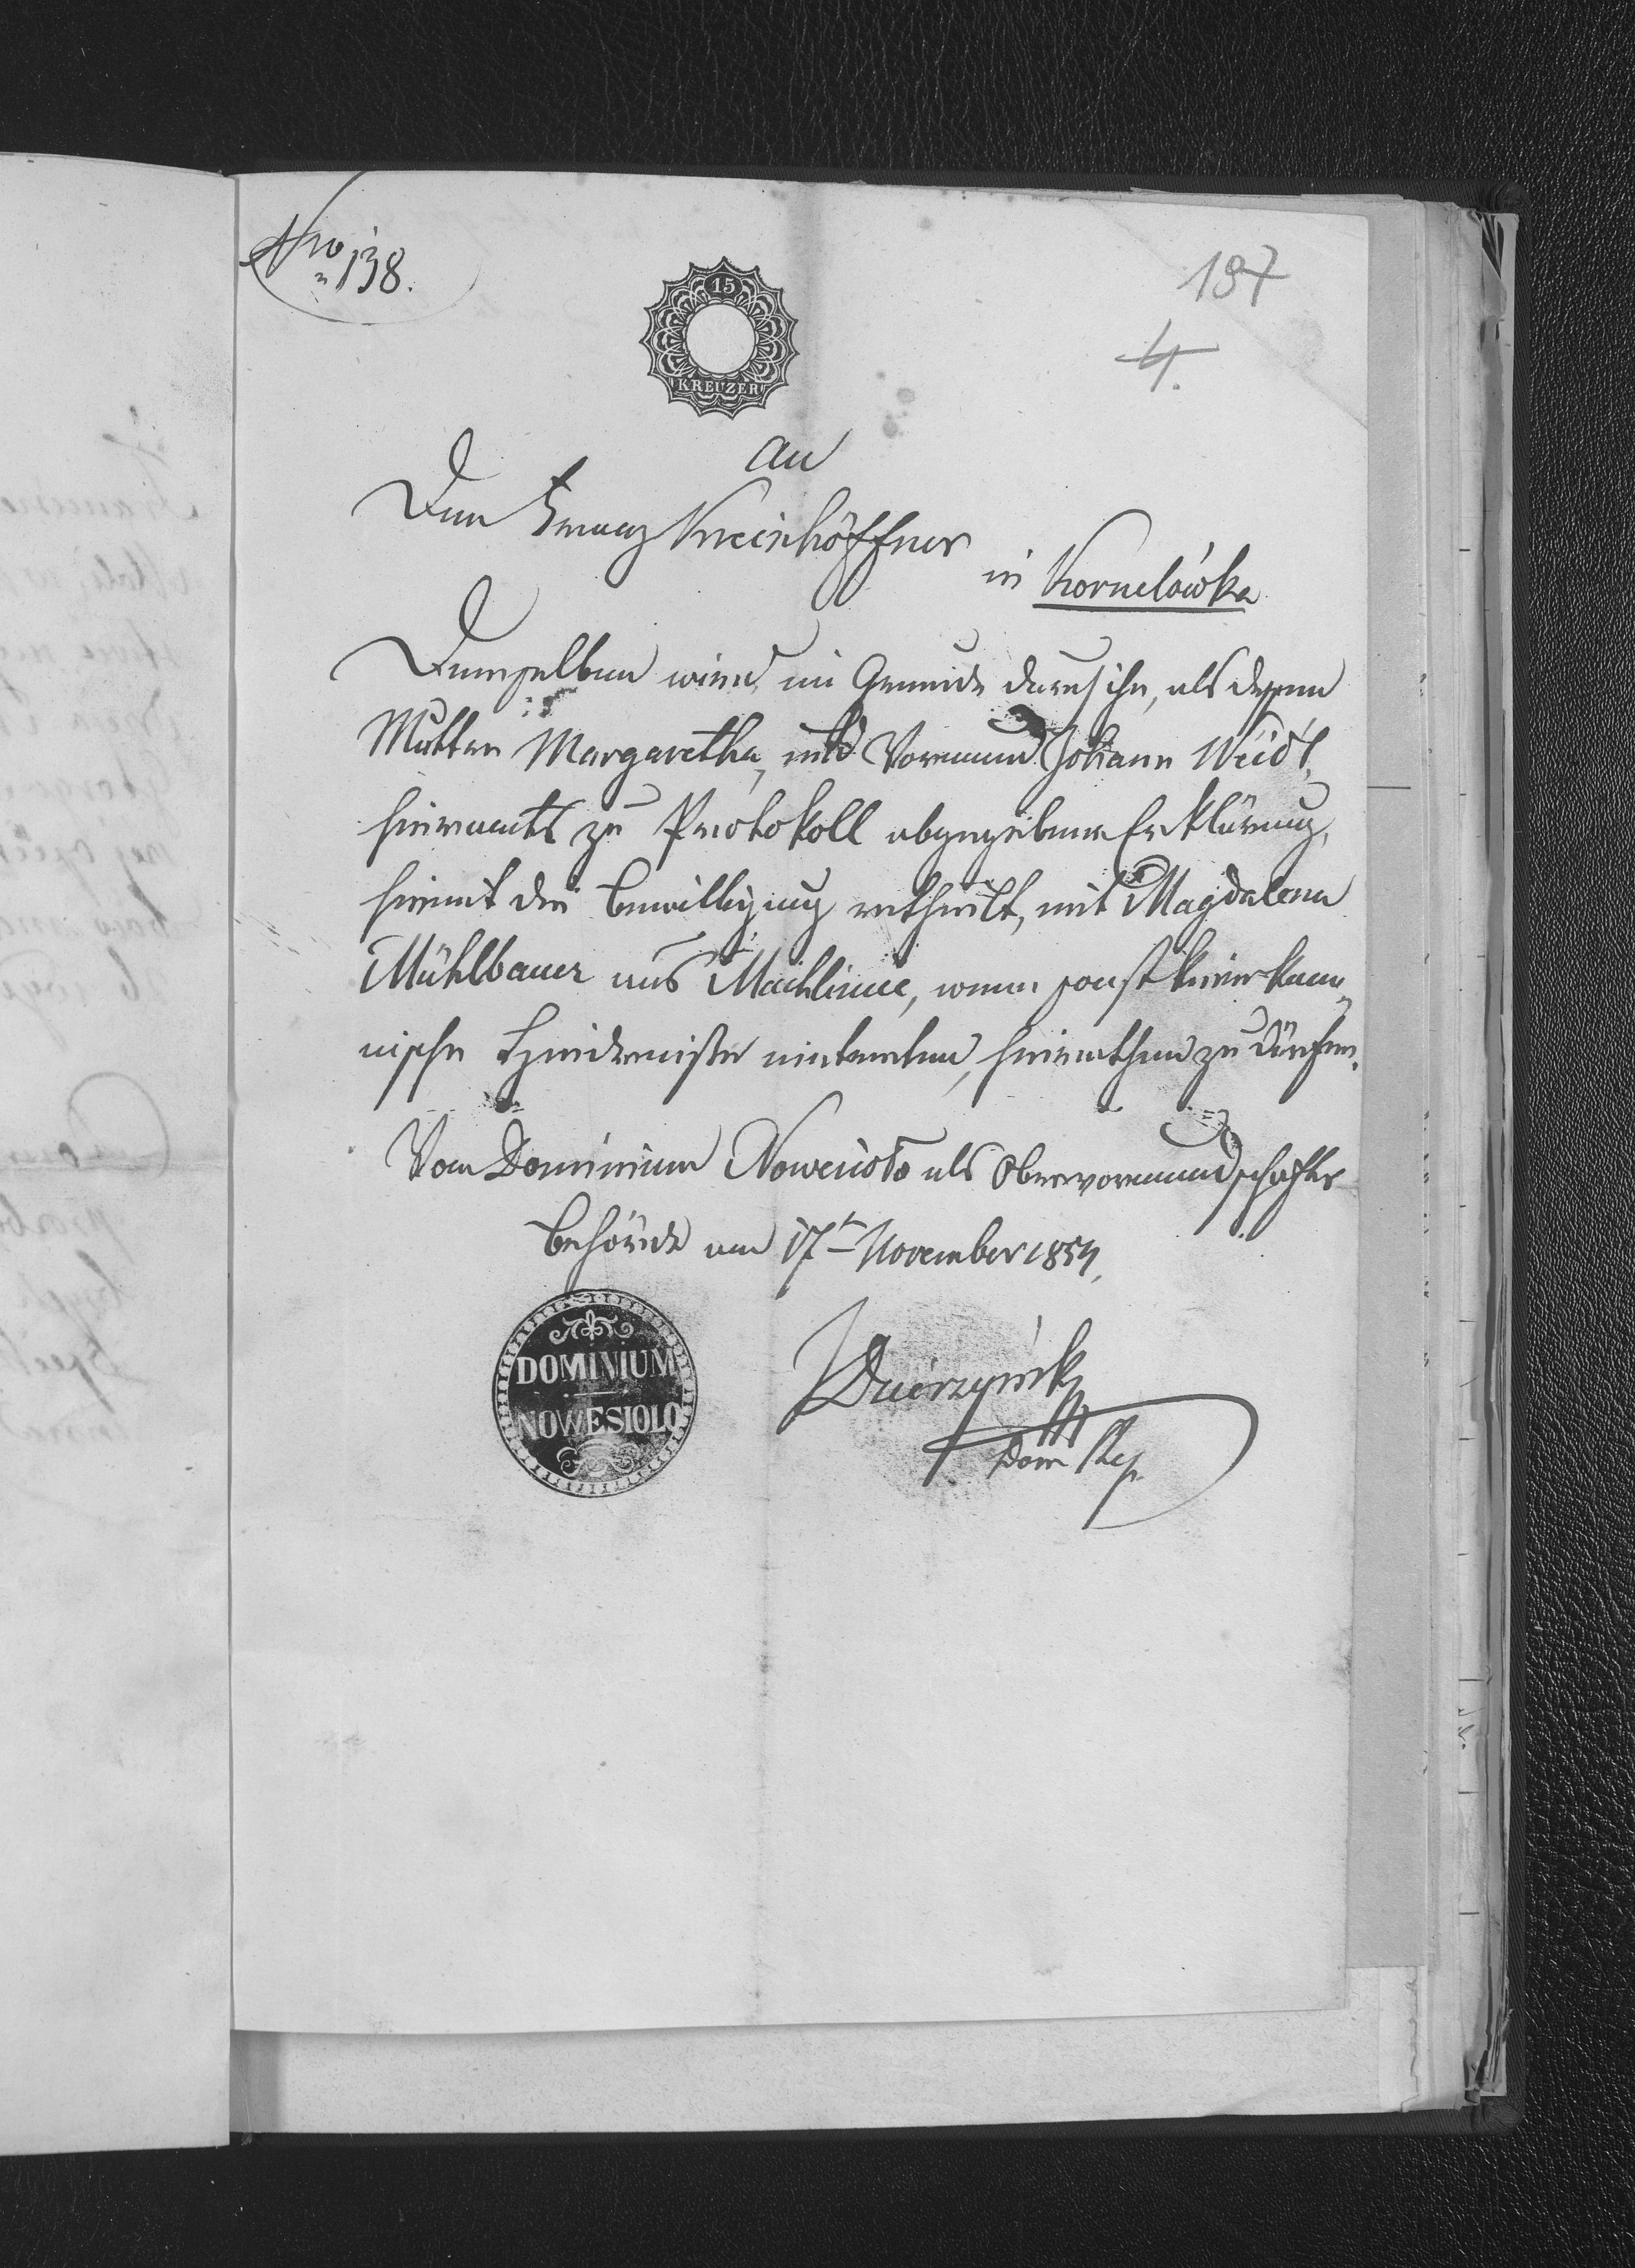 Nro 138.
187
4.
15
KREUZER
An
Den Franz Kreishöffner
in Kornelówka
Demselben wird, im Grunde durch ihn, als dessen
Mutter Margaretha, und Vormund Johann Weidl,
hieramts zu Protokoll abgegebener Erklärung,
hiemit die Bewilligung ertheilt, mit Magdalena
Mühlbauer aus Machlince, wenn sonst keine kano„
nische Hindernisse eintreten, heirathen zu dürfen.
Vom Dominium Nowesioło als Obervormundschafts
Behörde am 17t November 1854.
DOMINIUM
NOWESIOLO
Dom Rep.